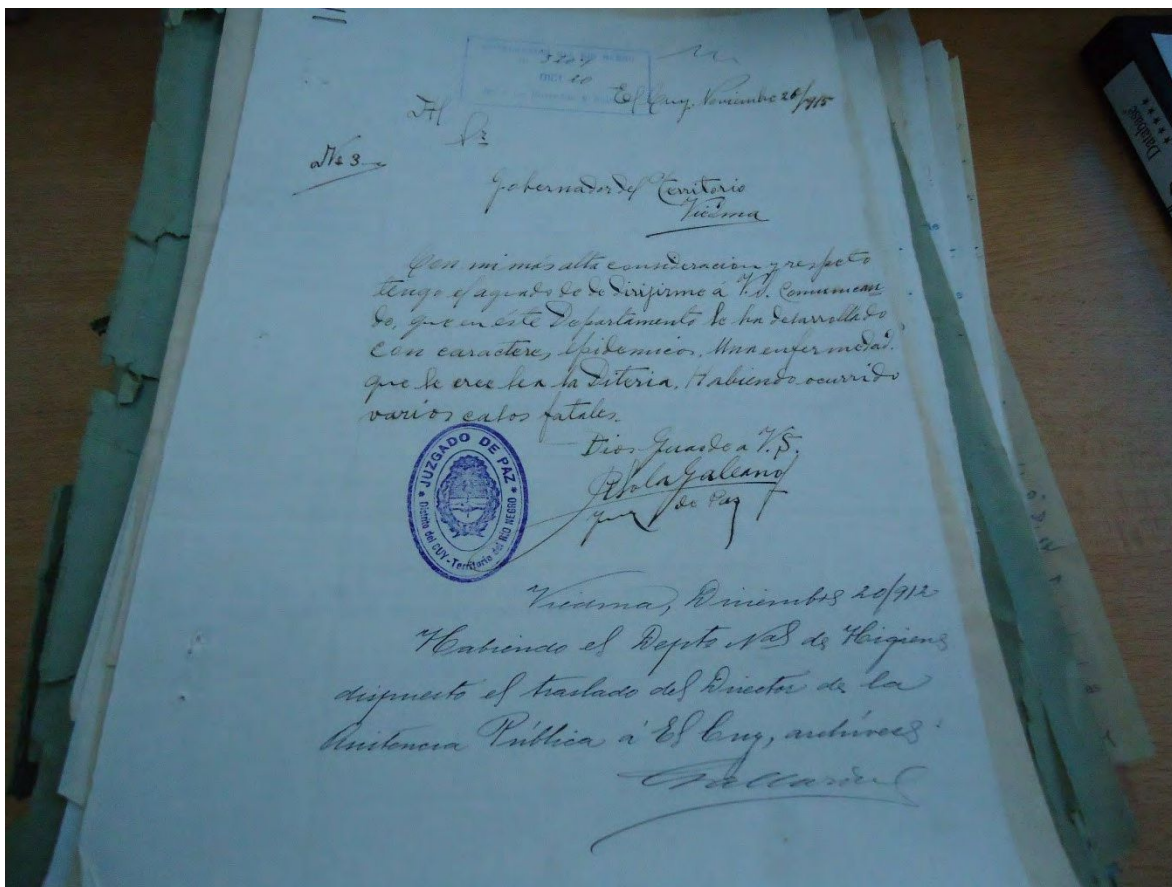 RIO NEGRO
3204
DICI 20
El Cuy, Noviembre 26/915
Al
Sr
No 3
Gobernador del Territorio
Viedma
Con mi más alta consideracion y respeto
tengo el agrado de dirijirme á V.S. Comunican
do, que en éste Departamento se ha desarrollado
con caracteres epidemicos, Una enfermedad.
que se cree sea la Diteria, Habiendo ocurrido
varios casos fatales.
Dios Guarde a V.S.
Galeano
Juez de Paz
JUZGADO DE PAZ
Distrito del CUY - Territorio del RIO NEGRO
Viedma, Diciembre 20/912
Habiendo el Depto Nal de Higiene
dispuesto el traslado del Director de la
Asistencia Pública á El Cuy, archívese
Database